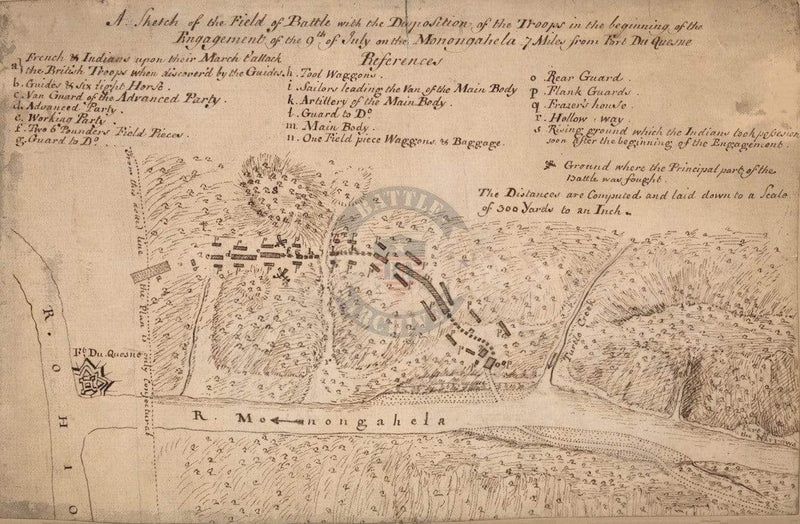 A Sketch of the Field of Battle with the Disposition of the Troops in the beginning of the
Engagement of the 9th of July on the Monongahela 7 Miles from Fort Du Quesne
References
a French & Indians upon their March t'attack
the British Troops when discover'd by the Guides.
b. Guides & six Light Horse.
c. Van Guard of the Advanced Party.
d. Advanced Party.
e. Working Party.
f. Two 6 Pounders Field Pieces.
g. Guard to Do.
h. Tool Waggons.
i. Sailors leading the Van of the Main Body
k. Artillery of the Main Body.
l. Guard to Do
m. Main Body.
n. One Field piece Waggons & Baggage.
o. Rear Guard.
p. Flank Guards.
q. Frazor's house.
r. Hollow way.
s. Rising ground which the Indians took possession
soon after the beginning of the Engagement.
Ground where the Principal part of the
Battle was fought.
The Distances are Computed and laid down to a Scale
of 300 Yards to an Inch.
BATTLE
ARCHIVES
From this dotted line
the Plan is only conjectural
Ft. Du Quesne
R. OHIO
R. Monongahela
Turtle Creek